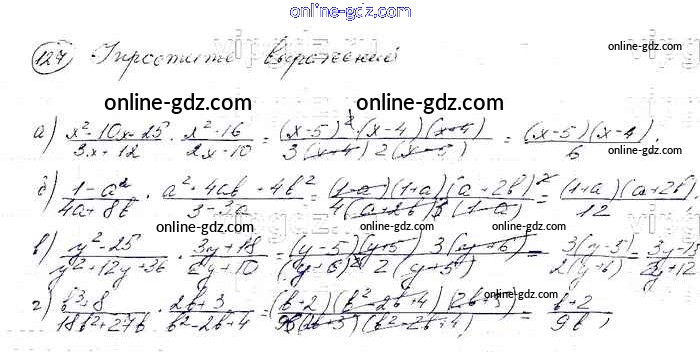 online-gdz.com
127 Упростите выражения
online-gdz.com
online-gdz.com
online-gdz.com
а) (x²-10x+25)/(3x+12) · (x²-16)/(2x-10) = ((x-5)²·(x-4)(x+4))/(3(x+4)2(x-5)) = ((x-5)(x-4))/6.
online-gdz.com
б) (1-a²)/(4a+8b) · (a²+4ab+4b²)/(3-3a) = ((1-a)(1+a)(a+2b)²)/(4(a+2b)3(1-a)) = ((1+a)(a+2b))/12.
online-gdz.com
в) (y²-25)/(y²+12y+36) · (3y+18)/(2y+10) = ((y-5)(y+5) 3(y+6))/((y+6)² 2(y+5)) = (3(y-5))/(2(y+6)) = (3y-15)/(2y+12)
online-gdz.com
г) (b³+8)/(18b²+27b) · (2b+3)/(b²-2b+4) = ((b+2)(b²-2b+4)(2b+3))/(9b(2b+3)(b²-2b+4)) = (b+2)/(9b)
online-gdz.com
online-gdz.com